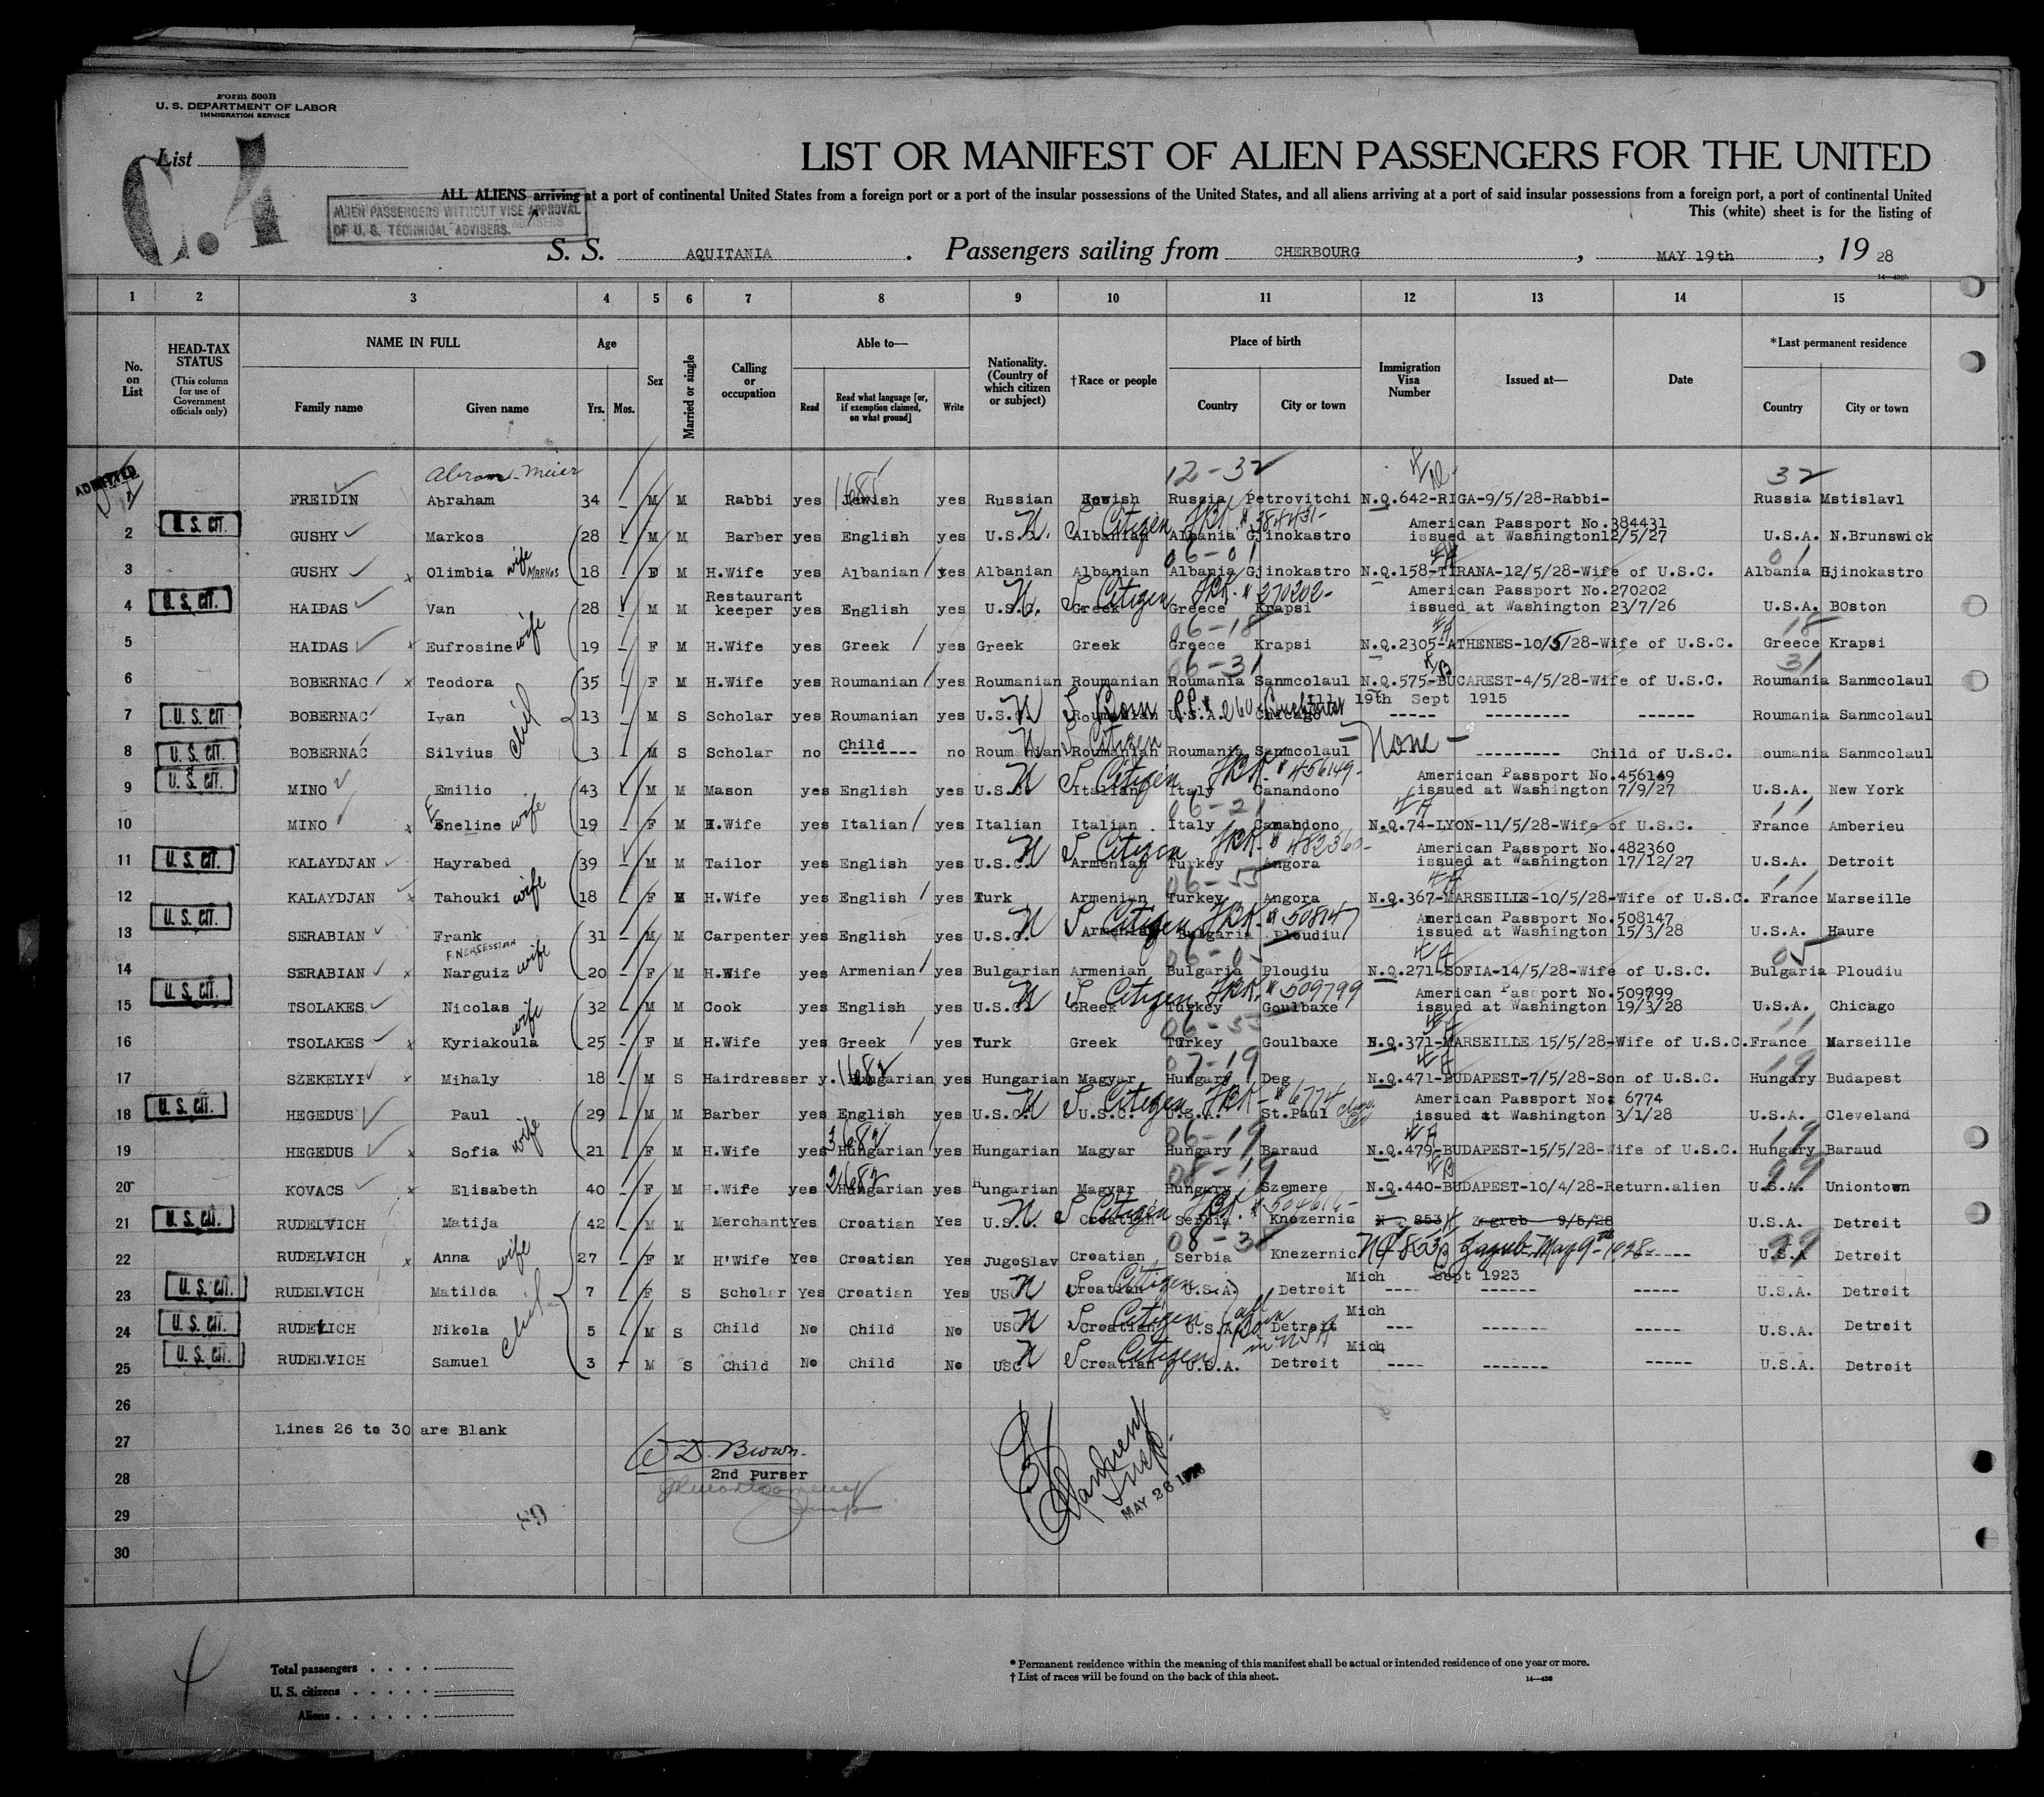 Form 500B
U. S. DEPARTMENT OF LABOR
IMMIGRATION SERVICE
List
C.4
LIST OR MANIFEST OF ALIEN PASSENGERS FOR THE UNITED
ALL ALIENS arriving at a port of continental United States from a foreign port or a port of the insular possessions of the United States, and all aliens arriving at a port of said insular possessions from a foreign port, a port of continental United
This (white) sheet is for the listing of
ALIEN PASSENGERS WITHOUT VISE APPROVAL
OF U. S. TECHNICAL ADVISERS.
S. S. AQUITANIA. Passengers sailing from CHERBOURG, MAY 19th, 1928
14—430b
1 2 3 4 5 6 7 8 9 10 11 12 13 14 15
No. on List
HEAD-TAX STATUS
(This column for use of Government officials only)
NAME IN FULL
Family name Given name
Age
Yrs. Mos.
Sex
Married or single
Calling or occupation
Able to—
Read
Read what language [or, if exemption claimed, on what ground]
Write
Nationality. (Country of which citizen or subject)
†Race or people
Place of birth
Country City or town
Immigration Visa Number
Issued at—
Date
*Last permanent residence
Country City or town
ADMITTED
Abram-Meier 12-32 32
1 FREIDIN Abraham 34 - M M Rabbi yes Jewish yes Russian Russia Petrovitchi N.Q.642-RIGA-9/5/28-Rabbi- Russia Mstislavl
U. S. CIT. N S Citizen #384431- American Passport No.384431
2 GUSHY Markos 28 - M M Barber yes English yes U.S.C. Albanian Albania Gjinokastro issued at Washington12/5/27 U.S.A. N.Brunswick
wife Markos 06-01 01
3 GUSHY x Olimbia 18 - F M H.Wife yes Albanian yes Albanian Albanian Albania Gjinokastro N.Q.158-TIRANA-12/5/28-Wife of U.S.C. Albania Gjinokastro
U. S. CIT. Restaurant N S Citizen #270202- American Passport No.270202
4 HAIDAS Van 28 - M M keeper yes English yes U.S.C. Greek Greece Krapsi issued at Washington 23/7/26 U.S.A. BOston
wife 06-18 18
5 HAIDAS x Eufrosine 19 - F M H.Wife yes Greek yes Greek Greek Greece Krapsi N.Q.2305-ATHENES-10/5/28-Wife of U.S.C. Greece Krapsi
06-31 31
6 BOBERNAC x Teodora 35 - F M H.Wife yes Roumanian yes Roumanian Roumanian Roumania Sanmcolaul N.Q.575-BUCAREST-4/5/28-Wife of U.S.C. Roumania Sanmcolaul
U. S. CIT N S Born Ill 19th Sept 1915
7 BOBERNAC Ivan 13 - M S Scholar yes Roumanian yes U.S.C. Roumanian U.S.A. Chicago ----- --------- ------ Roumania Sanmcolaul
U. S. CIT. N S Citizen Child - None -
8 BOBERNAC Silvius 3 - M S Scholar no -------- no Roumanian Roumanian Roumania Sanmcolaul --------- Child of U.S.C. Roumania Sanmcolaul
U. S. CIT. N S Citizen #456149- American Passport No.456149
9 MINO Emilio 43 - M M Mason yes English yes U.S.C. Italian Italy Canandono issued at Washington 7/9/27 U.S.A. New York
wife 06-21 11
10 MINO x Eneline 19 - F M H.Wife yes Italian yes Italian Italian Italy Camandono N.Q.74-LYON-11/5/28-Wife of U.S.C. France Amberieu
U. S. CIT. N S Citizen #482360- American Passport No.482360
11 KALAYDJAN Hayrabed 39 - M M Tailor yes English yes U.S.C. Armenian Turkey Angora issued at Washington 17/12/27 U.S.A. Detroit
wife 06-55 11
12 KALAYDJAN x Tahouki 18 - F M H.Wife yes English yes Turk Armenian Turkey Angora N.Q.367-MARSEILLE-10/5/28-Wife of U.S.C. France Marseille
U. S. CIT. N S Citizen #508147 American Passport No.508147
13 SERABIAN Frank 31 - M M Carpenter yes English yes U.S.C. Armenian Bulgaria Ploudiu issued at Washington 15/3/28 U.S.A. Haure
F. NERSESSIAN wife 06-05 05
14 SERABIAN x Narguiz 20 - F M H.Wife yes Armenian yes Bulgarian Armenian Bulgaria Ploudiu N.Q.271-SOFIA-14/5/28-Wife of U.S.C. Bulgaria Ploudiu
U. S. CIT. N S Citizen #509799 American Passport No.509799
15 TSOLAKES Nicolas 32 - M M Cook yes English yes U.S.C. GReek Turkey Goulbaxe issued at Washington 19/3/28 U.S.A. Chicago
wife 06-55 11
16 TSOLAKES x Kyriakoula 25 - F M H.Wife yes Greek yes Turk Greek Turkey Goulbaxe N.Q.371-MARSEILLE 15/5/28-Wife of U.S.C. France Marseille
07-19 19
17 SZEKELYI x Mihaly 18 - M S Hairdresser y. Hungarian yes Hungarian Magyar Hungary Deg N.Q.471-BUDAPEST-7/5/28-Son of U.S.C. Hungary Budapest
U. S. CIT. N S Citizen #6774 American Passport No. 6774
18 HEGEDUS Paul 29 - M M Barber yes English yes U.S.C. U.S.C. U.S.A. St.Paul issued at Washington 3/1/28 U.S.A. Cleveland
wife 06-19 19
19 HEGEDUS x Sofia 21 - F M H.Wife yes Hungarian yes Hungarian Magyar Hungary Baraud N.Q.479-BUDAPEST-15/5/28-Wife of U.S.C. Hungary Baraud
08-19 99
20 KOVACS x Elisabeth 40 - F M H.Wife yes Hungarian yes Hungarian Magyar Hungary Szemere N.Q.440-BUDAPEST-10/4/28-Return.alien U.S.A. Uniontown
U. S. CIT. N S Citizen
21 RUDELVICH Matija 42 - M M Merchant Yes Croatian Yes U.S.C. Croatian Serbia Knezernic N Q 853 Zagreb 9/5/28 U.S.A. Detroit
wife 99
22 RUDELVICH x Anna 27 - F M H'Wife Yes Croatian Yes Jugoslav Croatian Serbia Knezernic NQ 853 Zagreb May 9th 1928 ----- U.S.A Detroit
U. S. CIT. N S Citizen Mich Sept 1923
23 RUDELVICH Matilda 7 - F S Scholar Yes Croatian Yes USC Croatian U.S.A. Detroit ---- ------ ----- U.S.A. Detroit
U. S. CIT. N S Citizen all Born in USA Mich
24 RUDELICH Nikola 5 - M S Child No Child No USC Croatian U.S.A. Detroit --- ------- ----- U.S.A. Detroit
U. S. CIT. N S Citizen Mich
25 RUDELVICH Samuel 3 - M S Child No Child No USC Croatian U.S.A. Detroit ---- ------- ----- U.S.A. Detroit
26
Lines 26 to 30 are Blank
27
D. Brown
2nd Purser
28
MAY 26 1928
29
30
Total passengers
U. S. citizens
Aliens
* Permanent residence within the meaning of this manifest shall be actual or intended residence of one year or more.
† List of races will be found on the back of this sheet.
14—430